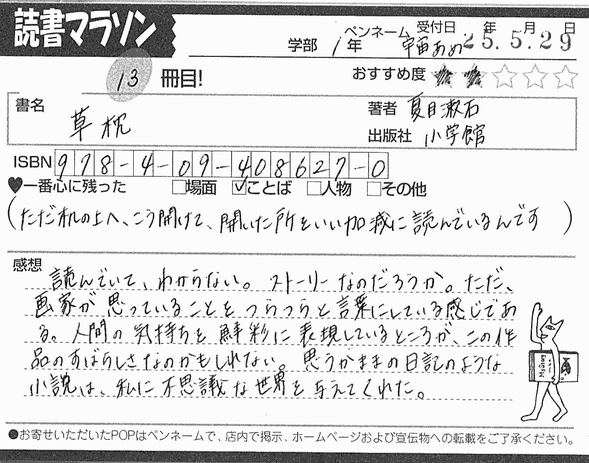 読書マラソン
学部 1年 ペンネーム 宇宙あめ 受付日 25年.5月.29日
13 冊目! おすすめ度 ★★☆☆☆
書名 草枕 著者 夏目漱石
出版社 小学館
ISBN 978-4-09-408627-0
♥一番心に残った □場面 ☑ことば □人物 □その他
(ただ机の上へ、こう開けて、開いた所をいい加減に読んでいるんです)
感想
読んでいて、わからない。ストーリーなのだろうか。ただ、
画家が思っていることをつらつらと言葉にしている感じであ
る。人間の気持ちを鮮彩に表現しているところが、この作
品のすばらしさなのかもしれない。思うがままの日記のような
小説は、私に不思議な世界を与えてくれた。
●お寄せいただいたPOPはペンネームで、店内で掲示、ホームページおよび宣伝物への転載をご了承ください。